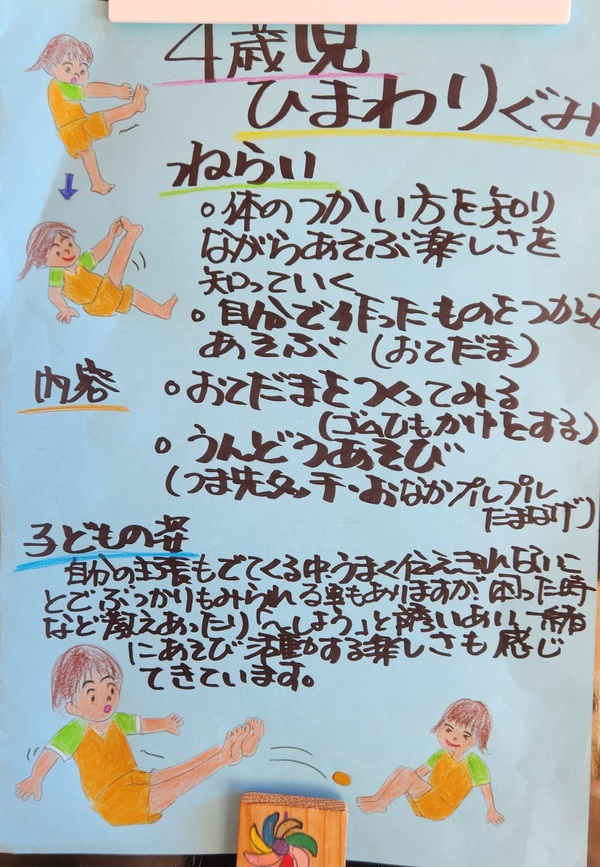 4歳児
ひまわりぐみ
ねらい
○体のつかい方を知り
ながらあそぶ楽しさを
知っていく
○自分で作ったものをつかって
あそぶ(おてだま)
内容
○おてだまをつくってみる
(ゴムひもかけをする)
○うんどうあそび
(つま先タッチ・おなかプルプル
たまなげ)
子どもの姿
自分の主張もでてくる中、うまく伝えきれないこ
とでぶつかりもみられる事もありますが困った時
など教えあったり「〜しよう」と誘いあい一緒
にあそび活動する楽しさも感じ
てきています。